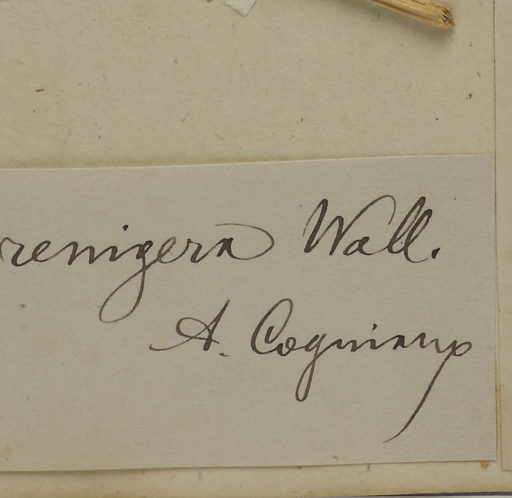 renigera Wall.
A. Cogniaux